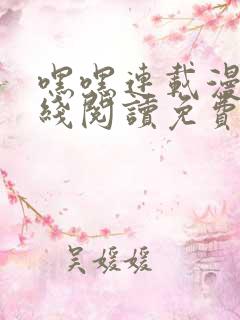 嘿嘿連載漫
綫閱讀免費
吳媛媛